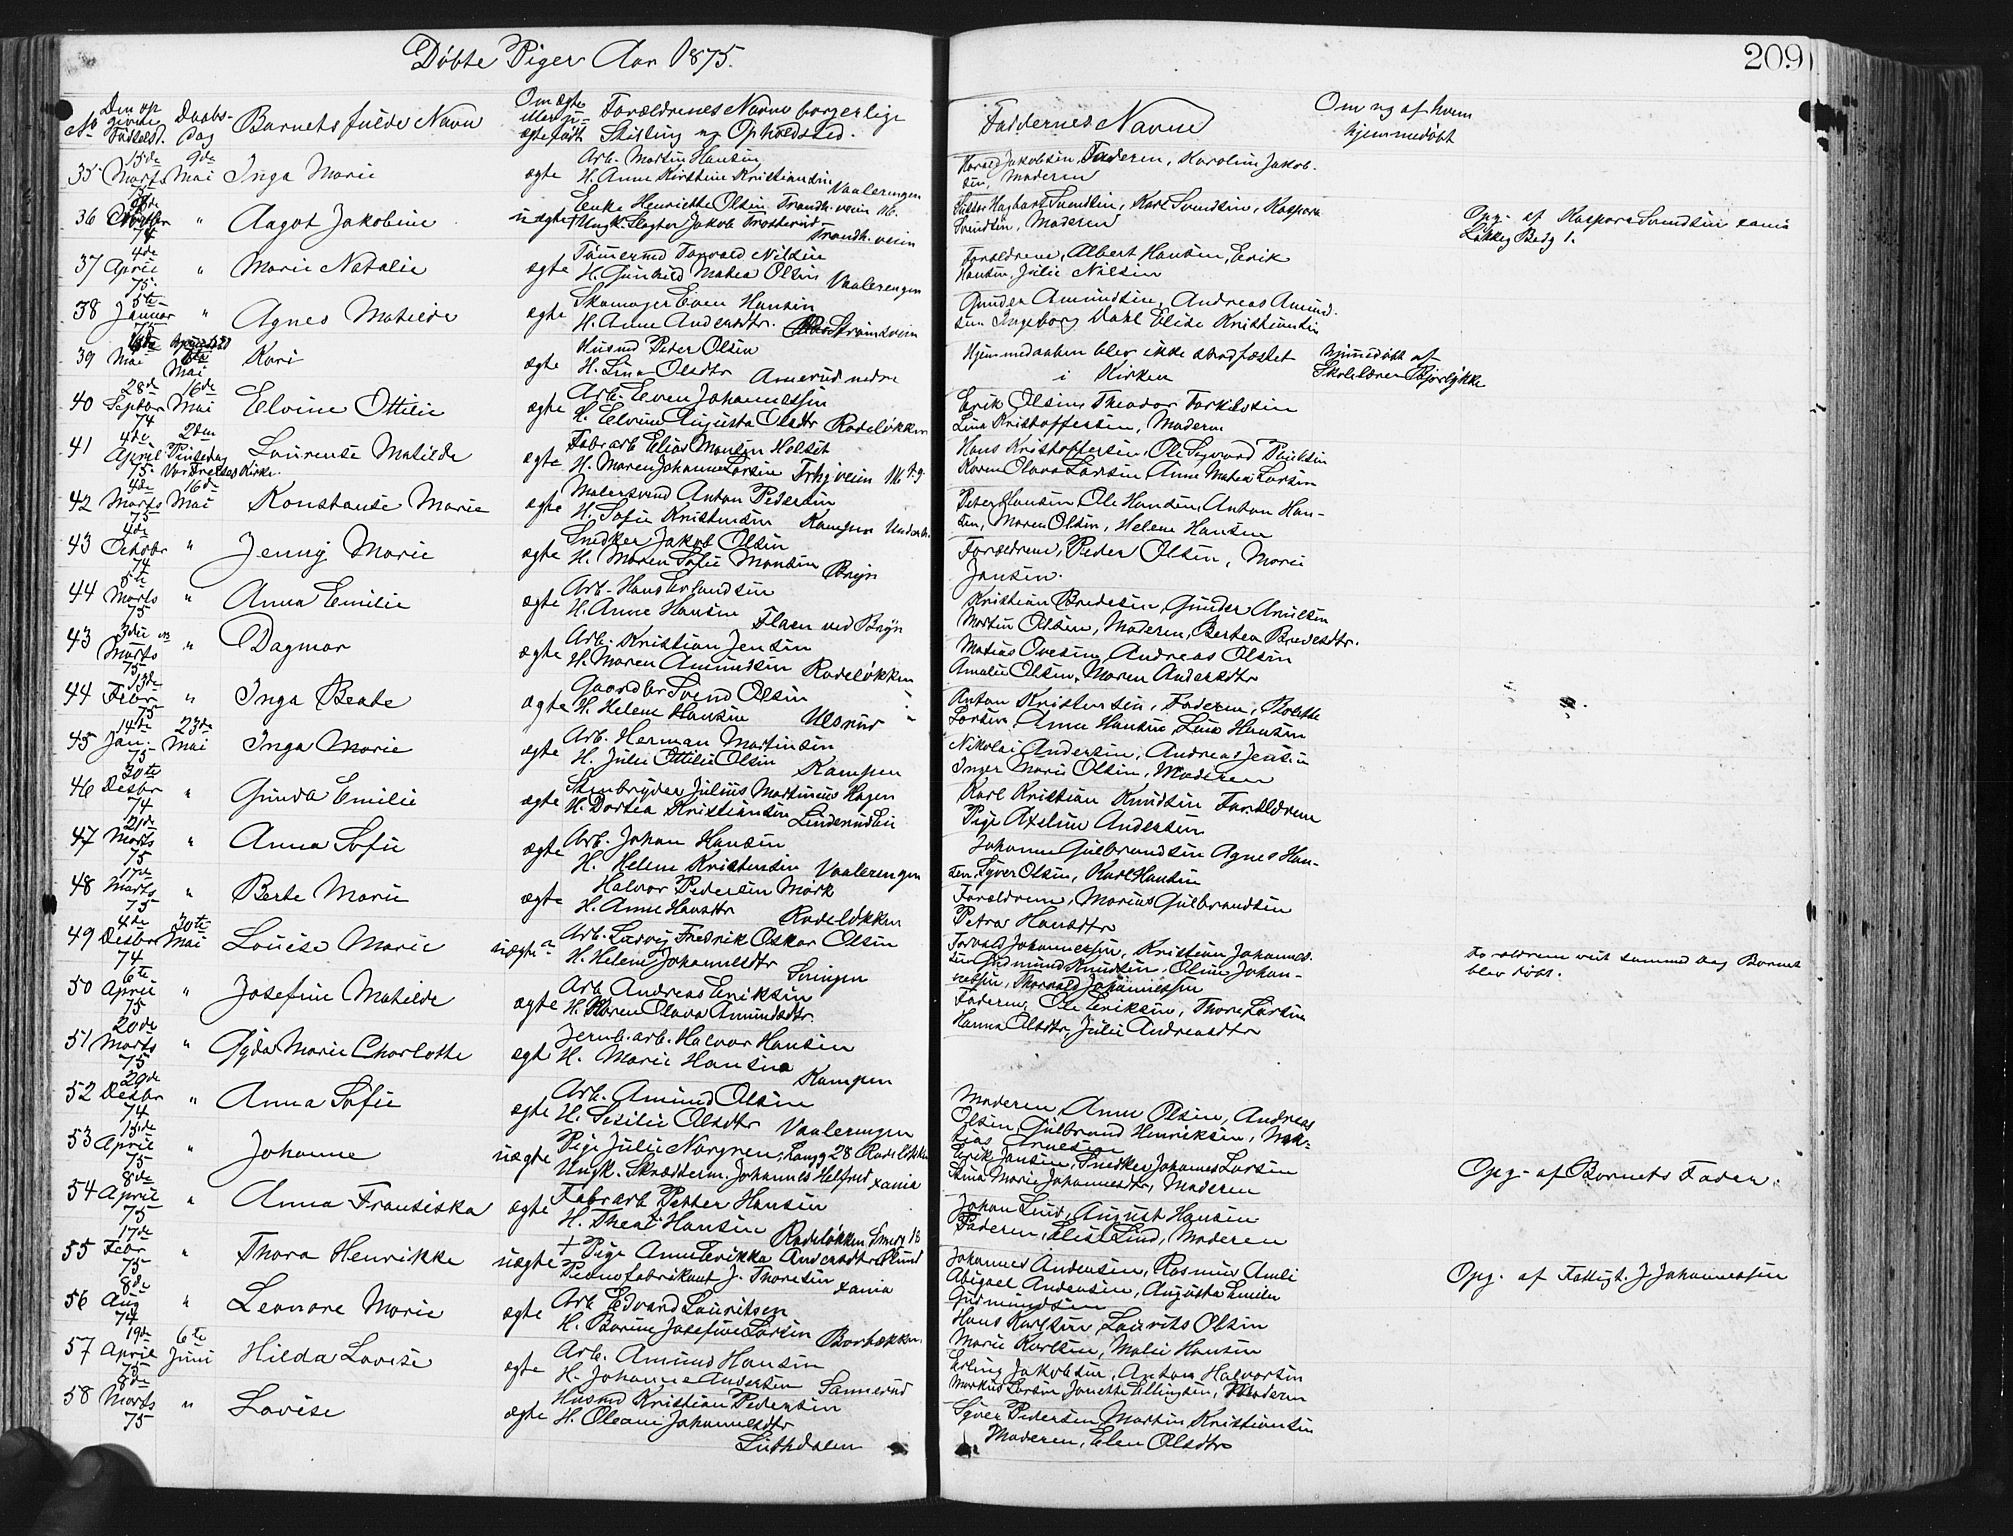 Døbte Piger Aar 1875.
209
No Den opgivne Fødselsd. Daabs-Dag Barnets fulde Navn Om ægte eller uægte født Forældrenes Navne borgerlige Stilling og Opholdssted.
Faddernes Navne
Om og af hvem hjemmedøbt
35 15de Marts 75 9de Mai Inga Marie ægte Arb. Martin Hansen
H. Anne Kirstine Kristiansen Vaalerengen
Harald Jakobsen, Faderen, Karoline Jakob-
sen, Moderen
36 74 " Aagot Jakobine uægte Enke Henriette Olsen Trondh. veien 16.
Ungk. Slagter Jakob Trosterud Trondh. veien
Hagbart Svendsen, Karl Svendsen, Kaspara
Svendsen, Moderen
Opg. af Kaspara Svendsen xania
37 4de April 75. " Marie Natalie ægte Tømermd Torvald Nilsen
H. Gunhild Matea Olsen Vaalerengen
Forældrene, Albert Hansen, Erik
Hansen, Julie Nilsen
38 5te Januar 75 " Agnes Matilde ægte Skomager Even Hansen
H. Anne Andersdtr. Strømsveien
Gunder Amundsen, Andreas Amund-
sen Ingeborg Dahl Elise Kristiansen
39 Mai 6te Mai Kari ægte Husmd Peder Olsen
H. Lina Olsdtr Amerud nedre
Hjemmedaaben blev ikke stadfæstet
i Kirken
hjemmedøbt af
Skolelærer Bjørløkke
40 28de Septbr 74 16de Mai Elvine Ottilie ægte Arb. Even Johannessen
H. Elvine Augusta Olsdtr Rodeløkken
Erik Olsen, Theodor Torkilsen
Lina Kristoffersen, Moderen
41 4de April 75. 2den Pintsedag Vor Frelsers Kirke. Laurense Matilde ægte Fabr arb Elias Monsen Holset
H. Maren Johanne Larsen
Hans Kristoffersen, Ole Sigvard Poulsen
Karen Olava Larsen Anne Matea Larsen
42 4de Marts 75 16de Mai Konstanse Marie ægte Malersvend Anton Pedersen
H. Sofie Kristensen Kampen
Peter Hansen, Ole Hansen, Anton Han-
sen, Maren Olsen, Helene Hansen
43 4de Octobr 74 " Jenny Marie ægte Snedker Jakob Olsen
H. Maren Sofie Monsen Bryn
Forældrene, Peder Olsen, Marie
Jansen.
44 5te Marts 75 " Anna Emilie ægte Arb. Hans Erlandsen
H. Anne Hansen Flaen ved Bryn
Kristian Bredesen, Gunder Amilsen
Martin Olsen, Moderen, Bertea Bredesdtr.
43 3die Marts 75 " Dagmar ægte Arb. Kristian Jensen
H. Maren Amundsen Rodeløkken
Matias Ovesen, Andreas Olsen
Amalie Olsen, Maren Andersdtr
44 13de Febr 75 " Inga Beate ægte Gaardbr Svend Olsen
H. Helene Hansen Ulsrud
Anton Kristensen, Faderen, Bolette
Larsen, Anne Hansen, Lina Hansen
45 14de Jan. 75 23de Mai Inga Marie ægte Arb. Herman Martinsen
H. Julie Ottilie Olsen Kampen
Nikolai Andersen, Andreas Jensen
Inger Marie Olsen, Moderen
46 30te Desbr 74 " Gunda Emilie ægte Stenbryder Julius Martinius Hagen
H. Dortea Kristiansen Linderud Eie
Karl Kristian Knudsen Forældrene
Pige Axeline Andersen
47 21de Marts 75 " Anna Sofie ægte Arb. Johan Hansen
H. Helene Kristensen Vaalerengen
Johanne Gulbrandsen Agnes Han-
sen, Syver Olsen, Karl Hansen
48 17de Marts 75 " Berte Marie ægte Halvor Pedersen Mørk
H. Anne Hansdtr Rodeløkken
Forældrene, Marius Gulbrandsen
Petra Hansdtr
49 4de Desbr 74 30te Mai Louise Marie uægte Arb. Ludvig Fredrik Oskar Olsen
H. Helene Johannesdtr Svingen
Torvald Johannessen, Kristian Johannes-
sen Gudmund Knudsen, Oline Johan-
nessen, Thorvald Johannessen
Forældrene viet samme Dag Barnet
blev døbt.
50 6te April 75 " Josefine Matilde ægte Arb. Andreas Eriksen
H. Karen Olava Amundsdtr.
Faderen, Ole Eriksen, Thora Larsen
Hanna Olsdtr, Julie Andreasdtr
51 20de Marts 75 " Gyda Marie Charlotte ægte Jernb. arb. Halvor Hansen
H. Marie Hansen Kampen
52 29de Desbr 74 " Anna Sofie ægte Arb. Amund Olsen
H. Sesilie Olsdtr Vaalerengen
Moderen Anne Olsen, Andreas
Olsen, Gulbrand Henriksen, Mat-
tias Arnesen
53 15de April 75 " Johanne uægte Pige Julie Norgren, Langg 28 Rodeløkken
Ungk. Skræderm. Johannes Helsrud xania
Erik Jansen, Snedker Johannes Larsen
Lina Marie Johannesdtr, Moderen
Opg. af Barnets Fader.
54 8de April 75 " Anna Fransiska ægte Fabr arb Petter Hansen
H. Thea Hansen Rodeløkken
Johan Lind, August Hansen
Faderen, Elise Lind, Moderen
55 17de Febr 75 " Thora Henrikke uægte Pige Anne Erikka Andersdtr Eklund
Pianofabrikant J. Thoresen xania
Johannes Andersen, Rasmus Amli
Abigael Andersen, Augusta Emilie
Gudmundsen
Opg. af Fattigt. J. Johannessen
56 8de Aug 74 " Leonore Marie ægte Arb Edvard Lauritsen
H. Barine Josefine Larsen
Hans Karlsen, Laurits Olsen
Marie Karlsen, Malie Hansen
57 19de April 75 6te Juni Hilda Lovise ægte Arb. Amund Hansen
H. Johanne Andersen Sannerud
Erling Jakobsen, Anton Halvorsen
Markus Larsen Janette Ellingsen, Moderen
58 8de Marts 75 " Lovise ægte Husmd Kristian Pedersen
H. Oleane Johannesdtr
Lutdalen
Syver Pedersen Martin Kristiansen
Moderen, Elen Olsdtr